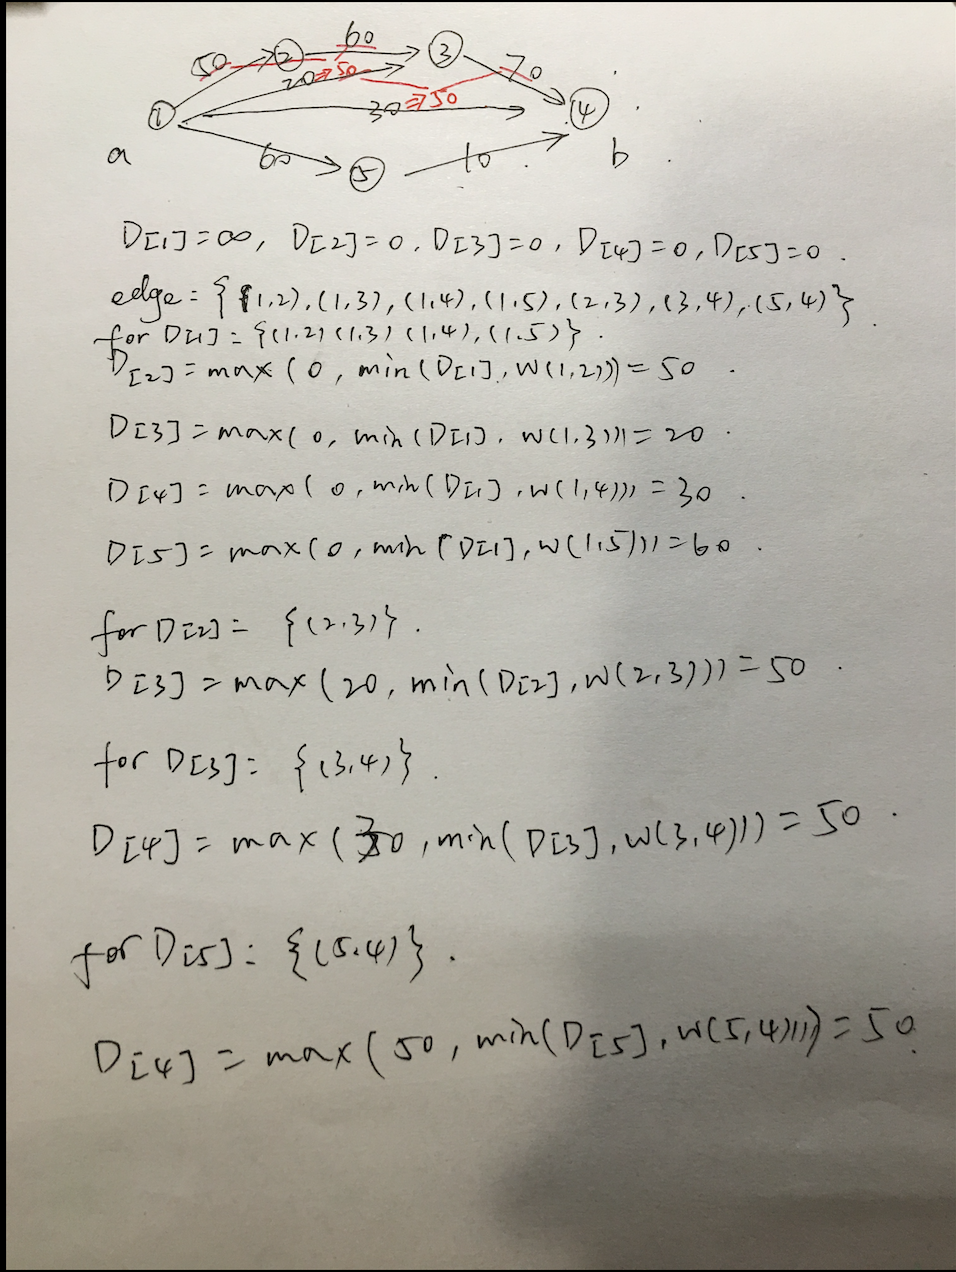 60
50 ② ③ 70
20 ⇒ 50
30 ⇒ 50
① ④
a 60 ⑤ 10 b
D[1]=∞, D[2]=0, D[3]=0, D[4]=0, D[5]=0.
edge = {(1,2),(1,3),(1,4),(1,5),(2,3),(3,4),(5,4)}
for D[1] = {(1,2)(1,3)(1,4),(1,5)}.
D[2] = max(0, min(D[1], W(1,2))) = 50.
D[3] = max(0, min(D[1], W(1,3))) = 20.
D[4] = max(0, min(D[1], W(1,4))) = 30.
D[5] = max(0, min(D[1], W(1,5))) = 60.
for D[2] = {(2,3)}.
D[3] = max(20, min(D[2], W(2,3))) = 50.
for D[3]: {(3,4)}.
D[4] = max(30, min(D[3], W(3,4))) = 50.
for D[5]: {(5,4)}.
D[4] = max(50, min(D[5], W(5,4)))) = 50.